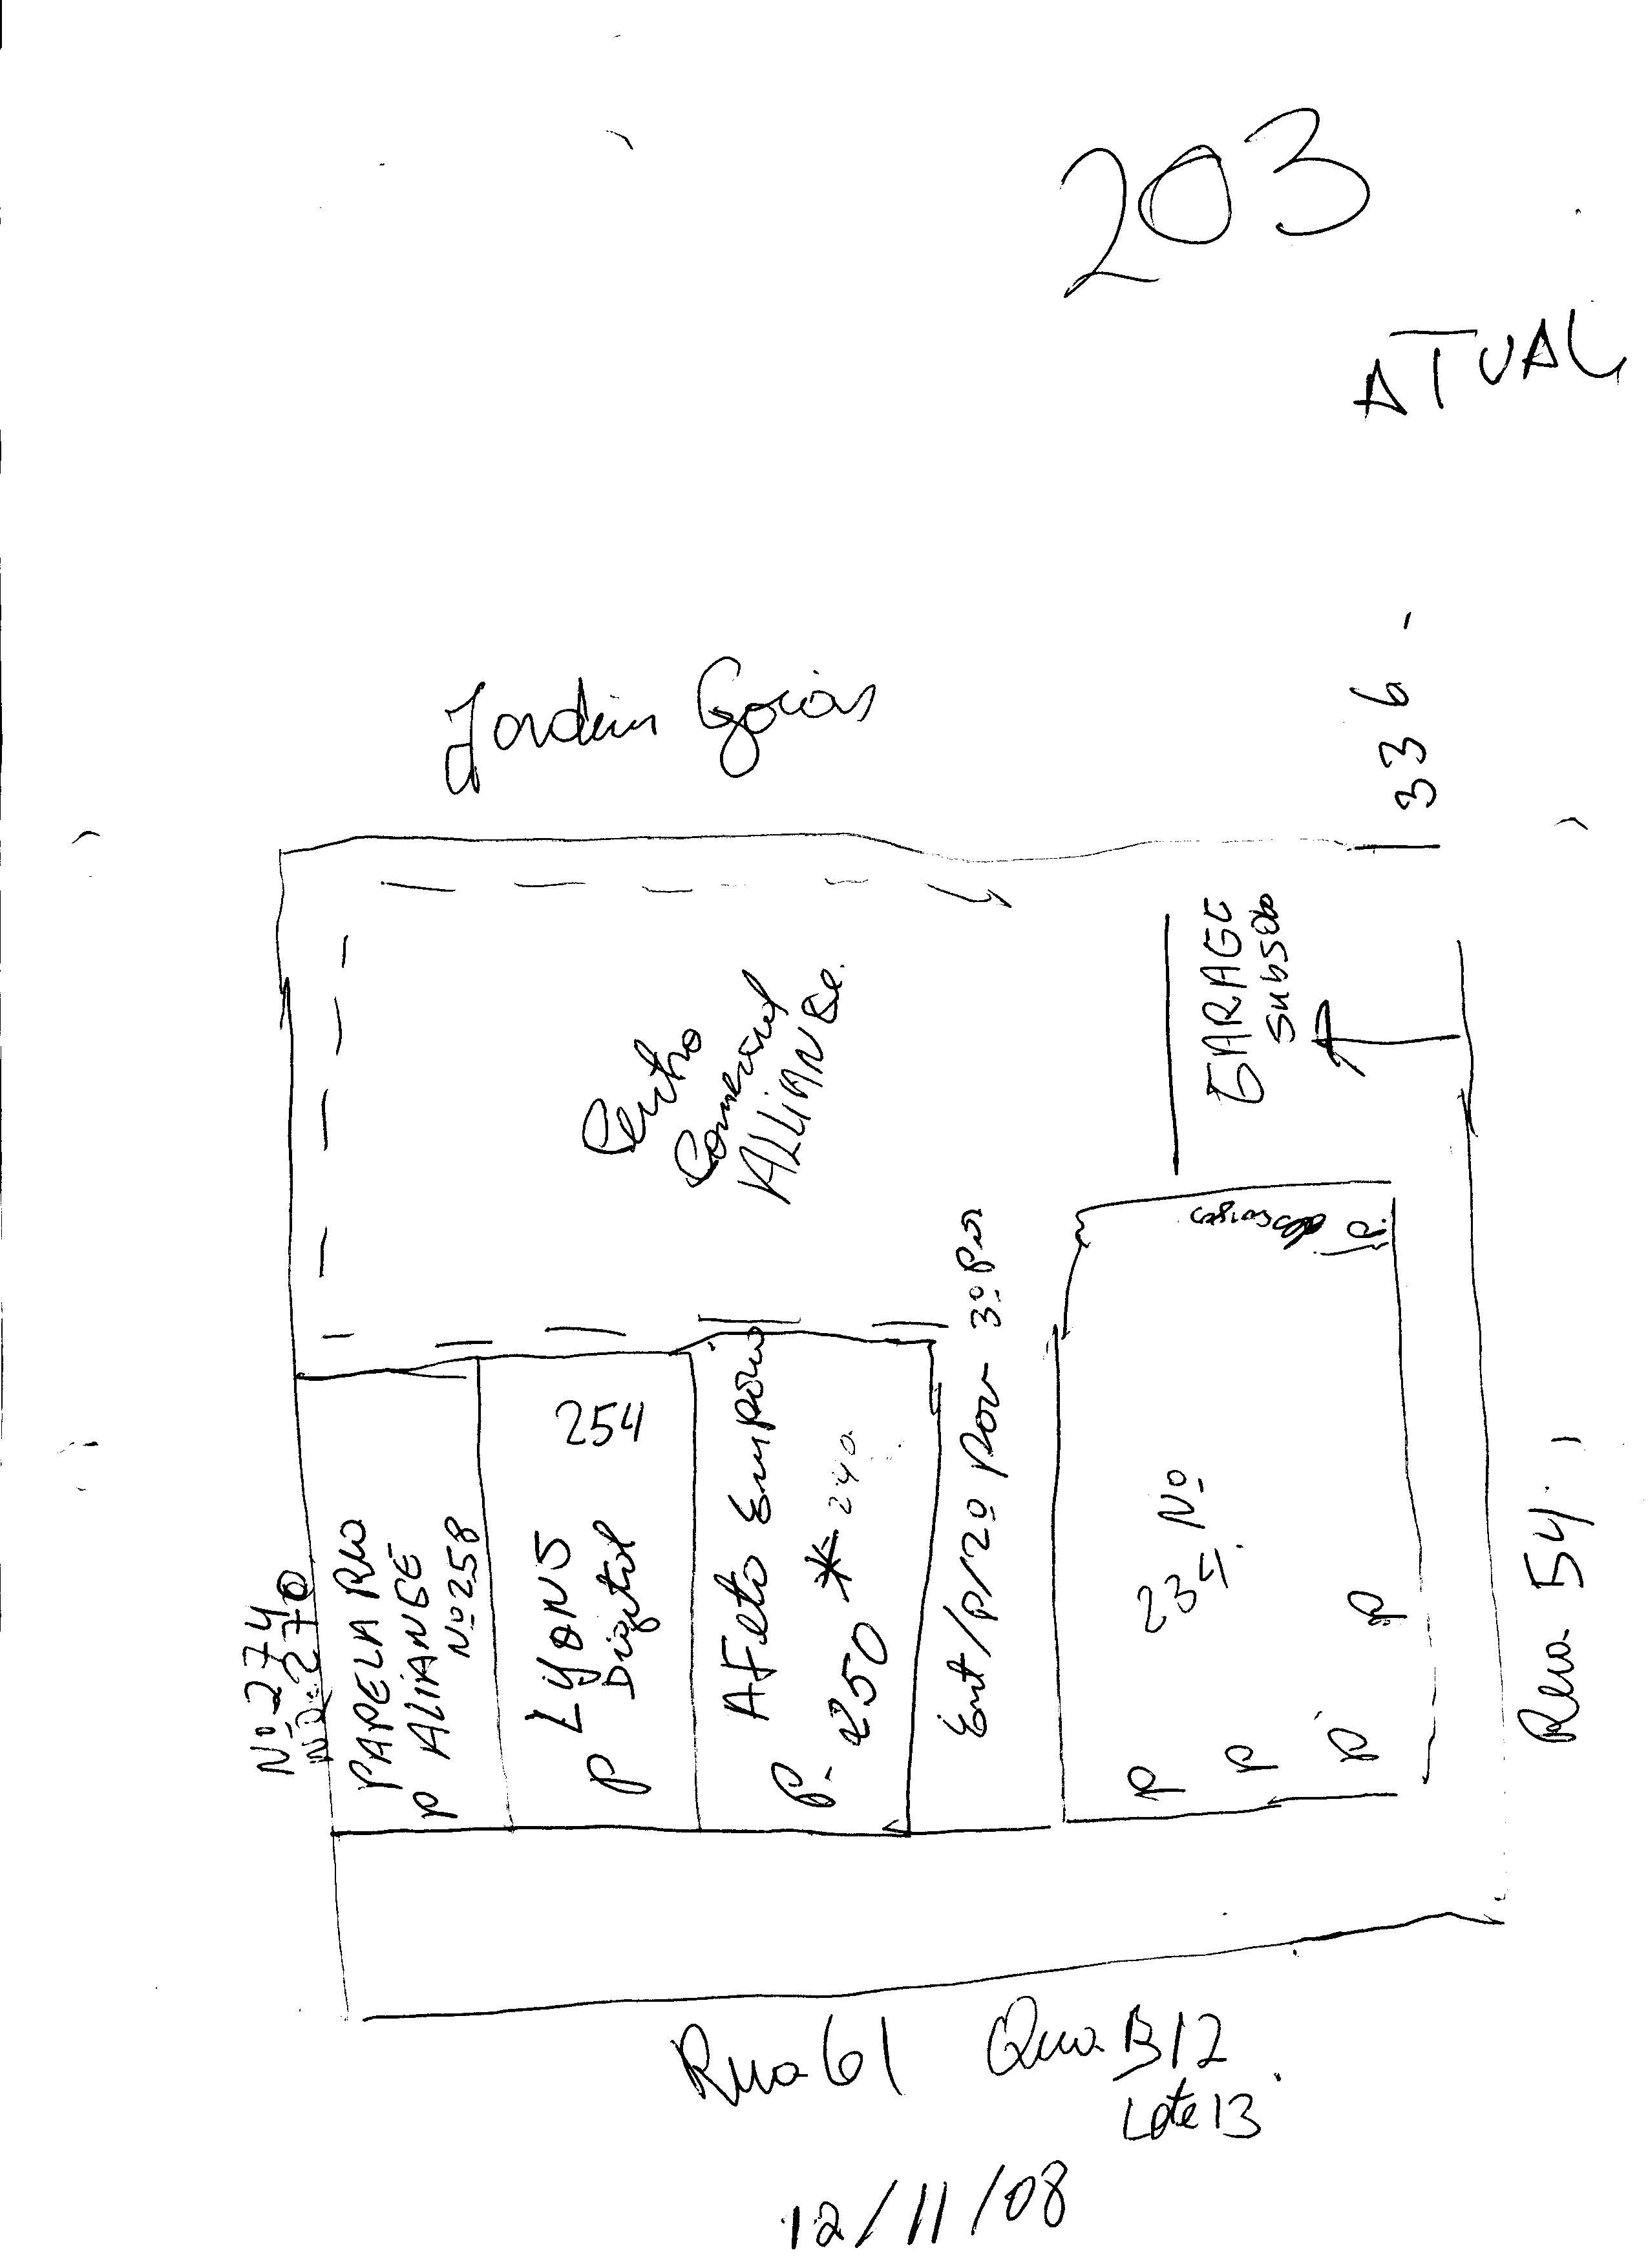 203
ATUAL
Jardim Goiás
336-
GARAGE
Subsolo
Centro
Comercial
ALLIANCE.
Nº 274
Nº 270
PAPELARIA
P ALIANCE
Nº 258
254
P Lyons
Digital
AFeto Empório
P- 250 * 240
Ent/p/2º Pav 3º Pav
Nº
234
P.
P P P P
Rua 54
Rua 61 Qua B12
Lote 13
12/11/08